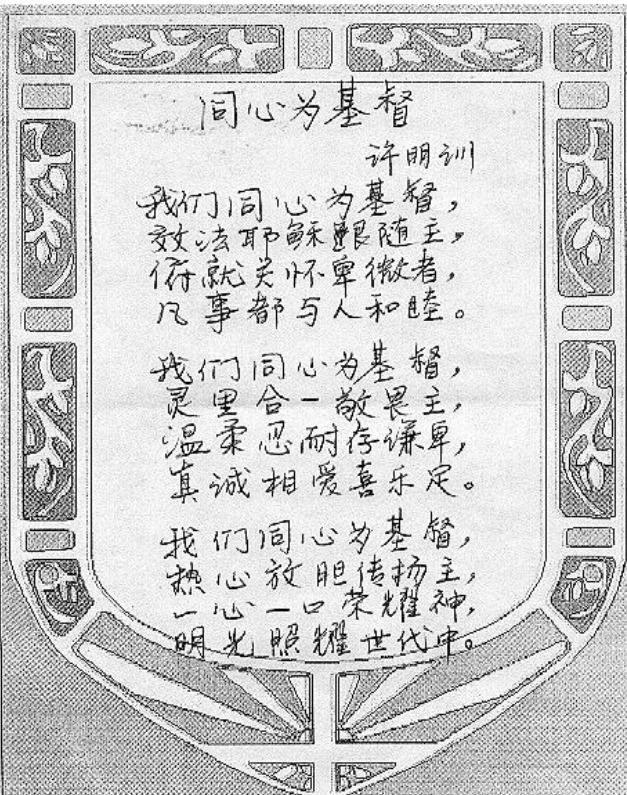 同心为基督
许明训
我们同心为基督，
效法耶稣跟随主。
俯就关怀卑微者，
凡事都与人和睦。
我们同心为基督，
灵里合一敬畏主，
温柔忍耐存谦卑，
真诚相爱喜乐足。
我们同心为基督，
热心放胆传扬主，
一心一口荣耀神，
明光照耀世代中。